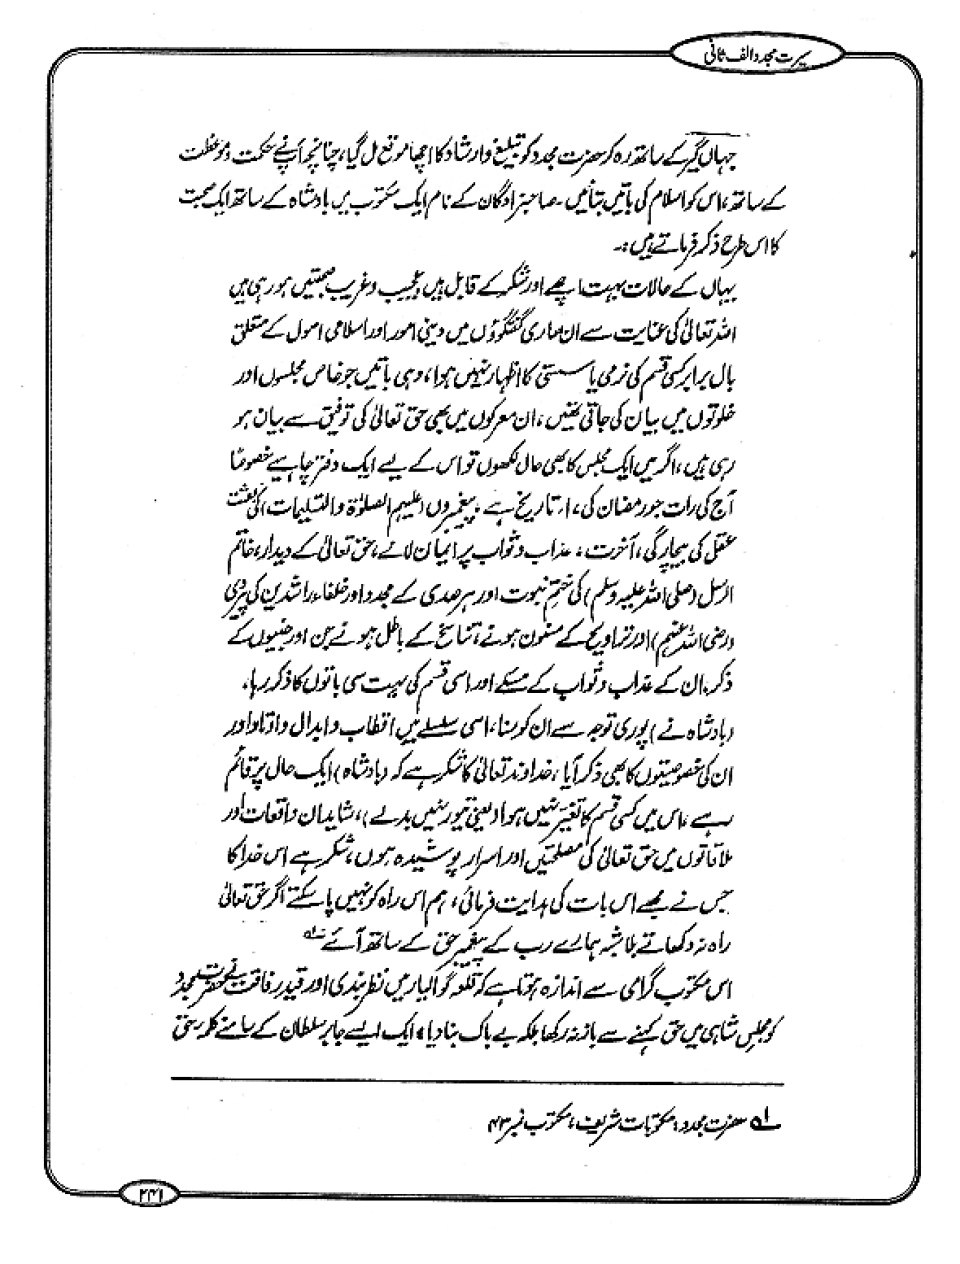 سیرت مجدد الف ثانی
جہاں گیر کے ساتھ رہ کر حضرت مجدد کو تبلیغ و ارشاد کا اچھا موقع مل گیا، چنانچہ آپ نے حکمت و موعظت
کے ساتھ، اس کو اسلام کی باتیں بتائیں۔ صاحبزادگان کے نام ایک مکتوب میں بادشاہ کے ساتھ ایک صحبت
کا اس طرح ذکر فرماتے ہیں:۔
یہاں کے حالات بہت اچھے اور شکر کے قابل ہیں، عجیب و غریب صحبتیں ہو رہی ہیں
اللہ تعالیٰ کی عنایت سے ان ہماری گفتگوؤں میں دینی امور اور اسلامی اصول کے متعلق
بال برابر کسی قسم کی نرمی یا سستی کا اظہار نہیں ہوا، وہی باتیں جو خاص مجلسوں اور
خلوتوں میں بیان کی جاتی تھیں، ان معرکوں میں بھی حق تعالیٰ کی توفیق سے بیان ہو
رہی ہیں، اگر میں ایک مجلس کا بھی حال لکھوں تو اس کے لیے ایک دفتر چاہیے خصوصًا
آج کی رات جو رمضان کی ۱۷ تاریخ ہے، پیغمبروں (علیہم الصلوٰۃ والتسلیمات) کی بعثت
عقل کی بیچارگی، آخرت، عذاب و ثواب پر ایمان لانے، حق تعالیٰ کے دیدار، خاتم
الرسل (صلی اللہ علیہ وسلم) کی ختم نبوت اور ہر صدی کے مجدد اور خلفاء راشدین کی پیروی
(رضی اللہ عنہم) اور تراویح کے مسنون ہونے، تناسخ کے باطل ہونے جن اور جنیوں کے
ذکر، ان کے عذاب و ثواب کے مسئلے اور اسی قسم کی بہت سی باتوں کا ذکر رہا۔
(بادشاہ نے) پوری توجہ سے ان کو سنا، اسی سلسلے میں اقطاب و ابدال و اوتاد اور
ان کی خصوصیتوں کا بھی ذکر آیا، خداوند تعالیٰ کا شکر ہے کہ (بادشاہ) ایک حال پر قائم
رہے، اس میں کسی قسم کا تغیر نہیں ہوا (یعنی تیور نہیں بدلے)، شاید ان واقعات اور
ملاقاتوں میں حق تعالیٰ کی مصلحتیں اور اسرار پوشیدہ ہوں، شکر ہے اس خدا کا
جس نے مجھے اس بات کی ہدایت فرمائی، ہم اس راہ کو نہیں پا سکتے اگر حق تعالیٰ
راہ نہ دکھاتے بلاشبہ ہمارے رب کے پیغمبر حق کے ساتھ آئے ۱؎
اس مکتوب گرامی سے اندازہ ہوتا ہے کہ قلعہ گوالیار میں نظر بندی اور قید رفاقت نے حضرت مجدد
کو مجلس شاہی میں حق کہنے سے باز نہ رکھا بلکہ بے باک بنا دیا، ایک ایسے جابر سلطان کے سامنے کلمہ حق
۱؎ حضرت مجدد: مکتوبات شریف، مکتوب نمبر ۴۳
۲۴۱